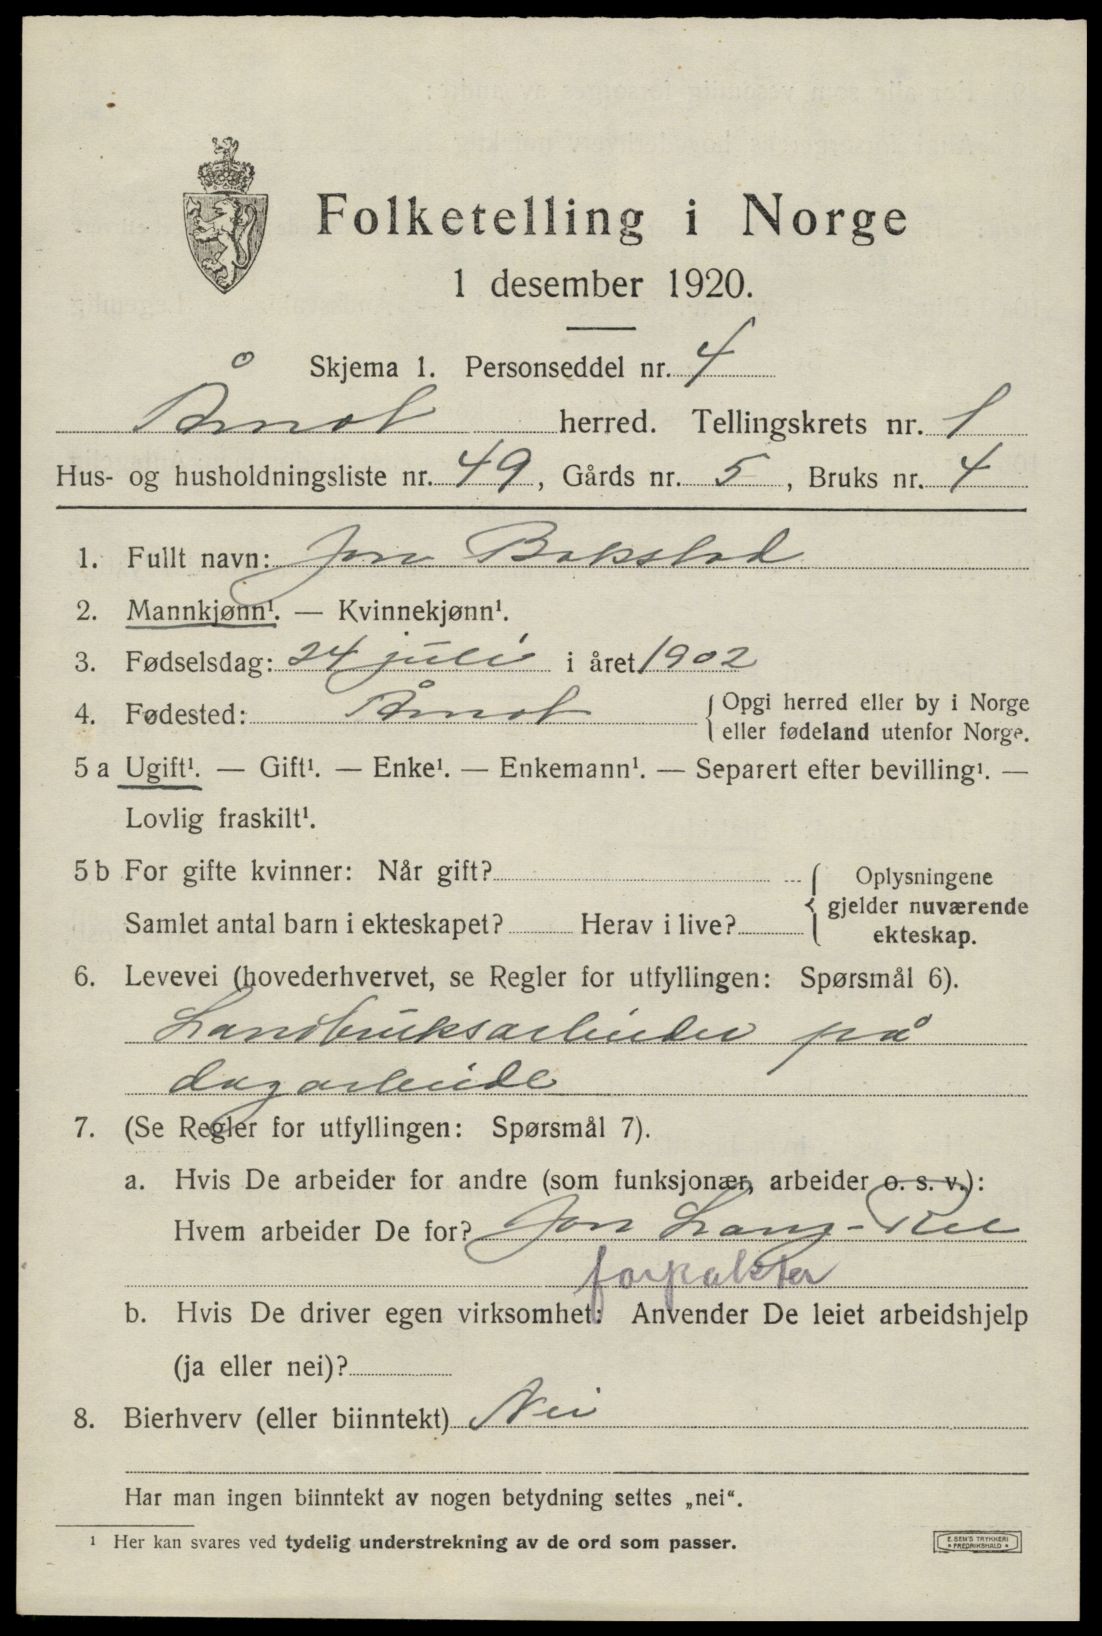 Folketelling i Norge
1 desember 1920.
Skjema 1. Personseddel nr. 4
Åmot herred. Tellingskrets nr. 1
Hus- og husholdningsliste nr. 49, Gårds nr. 5, Bruks nr. 4
1. Fullt navn: Jon Bakstad
2. Mannkjønn¹. — Kvinnekjønn¹.
3. Fødselsdag: 24 juli i året 1902
4. Fødested: Åmot { Opgi herred eller by i Norge
eller fødeland utenfor Norge.
5 a Ugift¹. — Gift¹. — Enke¹. — Enkemann¹. — Separert efter bevilling¹. —
Lovlig fraskilt¹.
5 b For gifte kvinner: Når gift? { Oplysningene
gjelder nuværende
Samlet antal barn i ekteskapet? Herav i live? ekteskap.
6. Levevei (hovederhvervet, se Regler for utfyllingen: Spørsmål 6).
Landbruksarbeider på
dagarbeide
7. (Se Regler for utfyllingen: Spørsmål 7).
a. Hvis De arbeider for andre (som funksjonær, arbeider o. s. v.):
Hvem arbeider De for? Jon Lang-Ree
forpakter
b. Hvis De driver egen virksomhet: Anvender De leiet arbeidshjelp
(ja eller nei)?
8. Bierhverv (eller biinntekt) Nei
Har man ingen biinntekt av nogen betydning settes „nei“.
¹ Her kan svares ved tydelig understrekning av de ord som passer.
E. SEM'S TRYKKERI
* FREDRIKSHALD *